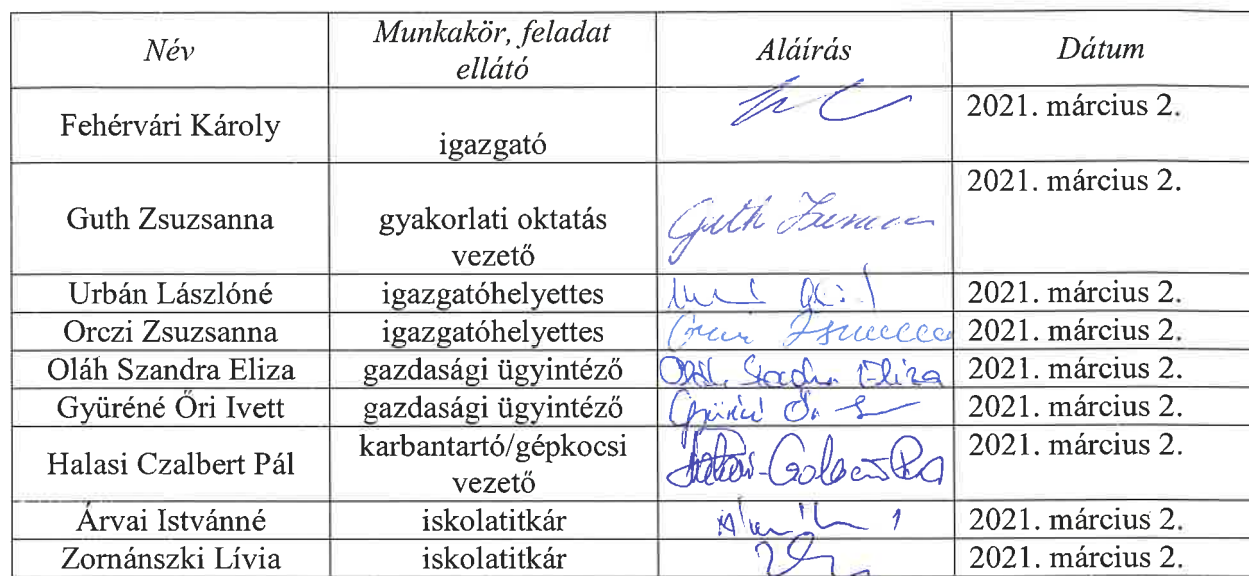 Név Munkakör, feladat ellátó Aláírás Dátum
Fehérvári Károly igazgató 2021. március 2.
Guth Zsuzsanna gyakorlati oktatás vezető Guth 2021. március 2.
Urbán Lászlóné igazgatóhelyettes 2021. március 2.
Orczi Zsuzsanna igazgatóhelyettes 2021. március 2.
Oláh Szandra Eliza gazdasági ügyintéző Oláh Szandra Eliza 2021. március 2.
Gyüréné Őri Ivett gazdasági ügyintéző 2021. március 2.
Halasi Czalbert Pál karbantartó/gépkocsi vezető 2021. március 2.
Árvai Istvánné iskolatitkár 2021. március 2.
Zornánszki Lívia iskolatitkár 2021. március 2.